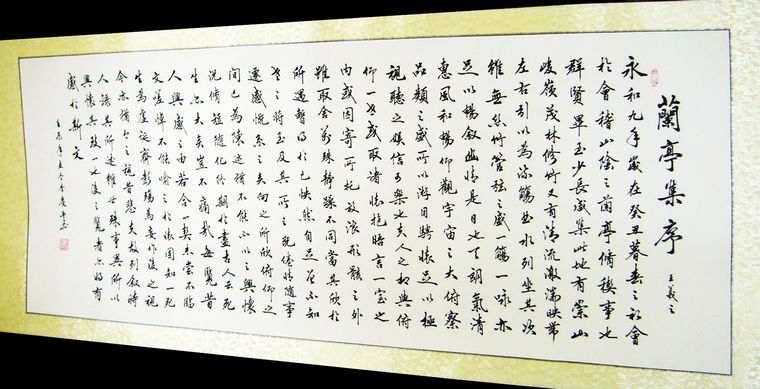 蘭亭集序
王羲之
永和九年歲在癸丑暮春之初會
於會稽山陰之蘭亭脩稧事也
群賢畢至少長咸集此地有崇山
峻嶺茂林修竹又有清流激湍映帶
左右引以為流觴曲水列坐其次
雖無絲竹管弦之盛一觴一詠亦
足以暢敘幽情是日也天朗氣清
惠風和暢仰觀宇宙之大俯察
品類之盛所以游目騁懷足以極
視聽之娛信可樂也夫人之相與俯
仰一世或取諸懷抱晤言一室之
內或因寄所托放浪形骸之外
雖取舍萬殊靜躁不同當其欣於
所遇暫得於己快然自足曾不知
老之將至及其所之既倦情隨事
遷感慨系之矣向之所欣俯仰之
間已為陳迹猶不能不以之興懷
況脩短隨化終期於盡古人云死
生亦大矣豈不痛哉每覽昔
人興感之由若合一契未嘗不臨
文嗟悼不能喻之於懷固知一死
生為虛誕齊彭殤為妄作後之視
今亦猶今之視昔悲夫故列敘時
人錄其所述雖世殊事異所以
興懷其致一也後之覽者亦將有
感於斯文